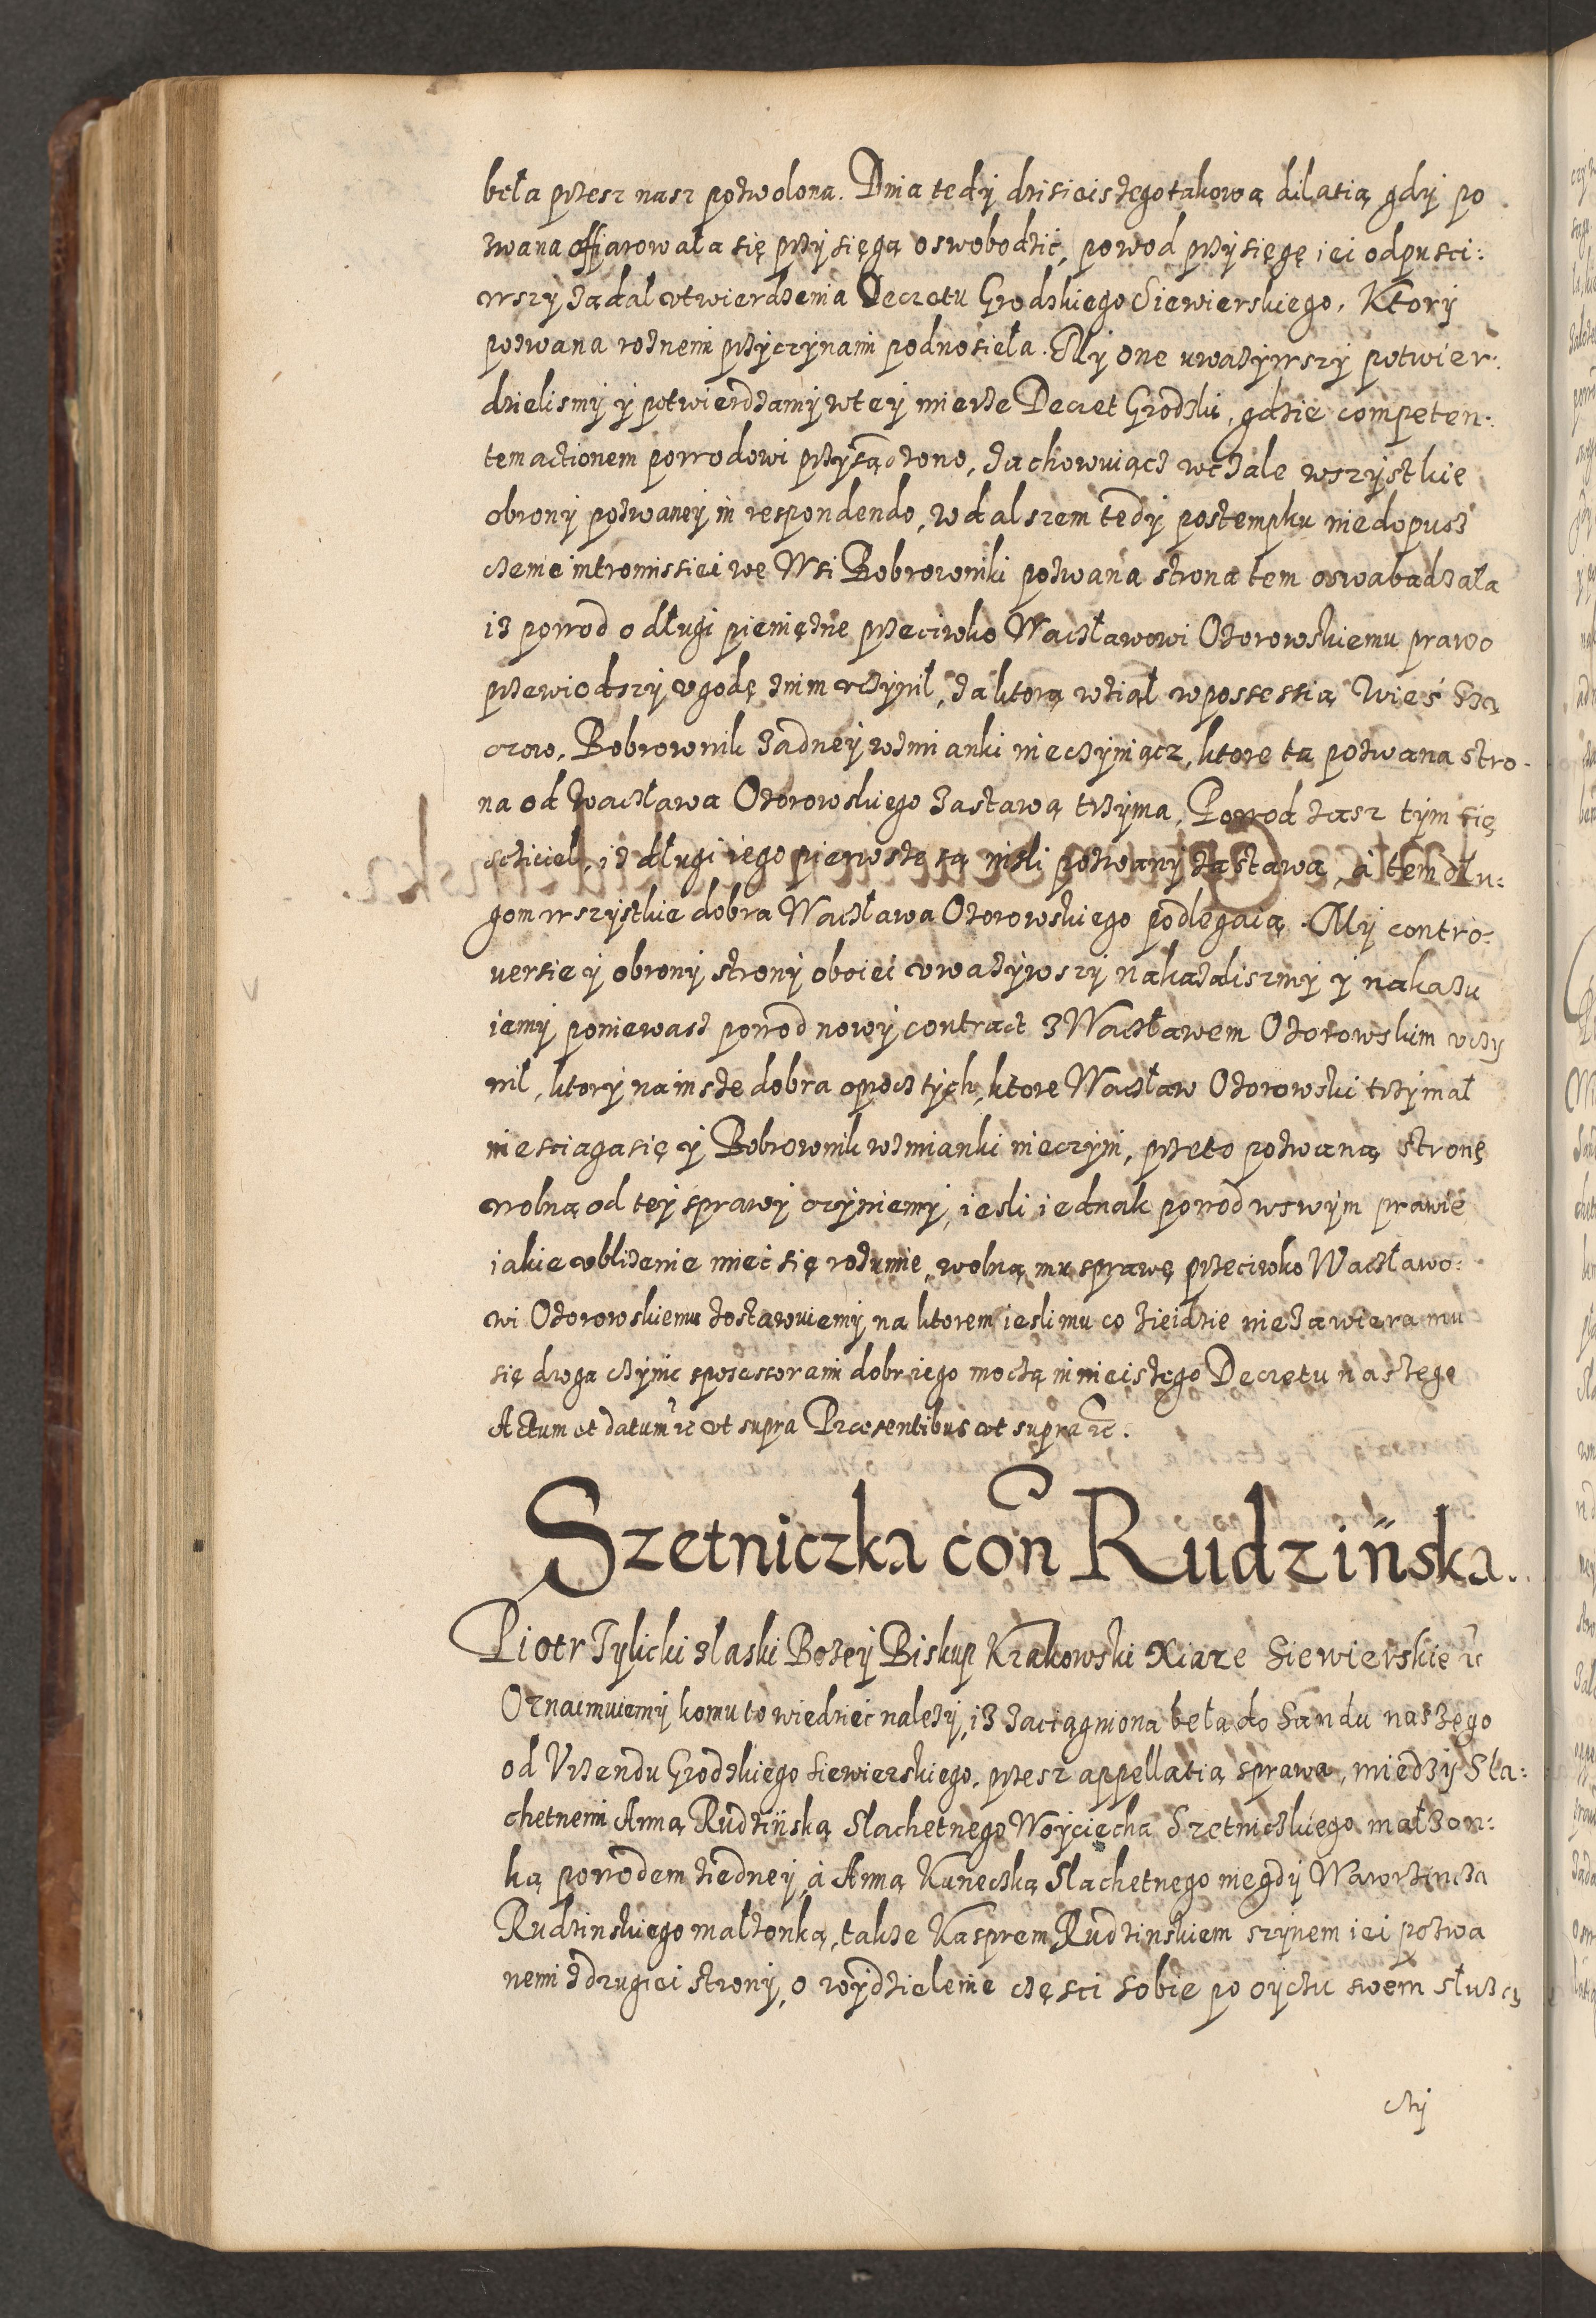 beła przesz nasz pozwolona. Dnia tedy dzisieiszego takową dilatią, gdy po
zwana offiarowała się przysięgą oswobodzić, powod przysięgę iei odpusci:
wszy żądał vtwierdzenia Decretu Grodzkiego Siewierskiego. Ktory
pozwana roznemi przyczynami podnosieła. My one uważywszy potwier:
dzielismy y potwierdzamy w tey mierze Decret Grodzki, gdzie competen:
tem actionem powodowi przysądzono, zachowuiącz wczale wszystkie
obrony pozwaney in respondendo, w dalszem tedy postempku niedopusz
czenie intromissiei we Wsi Bobrowniki pozwana strona tem oswabadzała
iz powod o długi pieniężne przeciwko Wacławowi Ozorowskiemu prawo
przewiodszy vgodę znim vczynił, za ktorą wziął w possessią Wieś
Bobrownik żadney wzmianki nieczyniącz, ktore ta pozwana stro-
na od Wacława Ozorowskiego zastawą trzyma, Powod zasz tym się
sczicieł, iz długi iego pierwsze są niżli pozwany zastawa, a tem dłu:
gom wszystkie dobra Wacława Ozorowskiego podlegaią. My contro:
uersie y obrony strony oboiei vważywszy nakazaliszmy y nakazu
iemy ponieważ powod nowy contract z Wacławem Ozorowskim vczy
nił, ktory na insze dobra oprocz tych, ktore Wacław Ozorowski trzymał
niesciąga się y Bobrownik wzmianki nieczyni, przeto pozwaną stronę
wolną od tey sprawy czyniemy, iesli iednak powod w swym prawie
iakie vbliżenie mieć się rozumie, wolną mu sprawę przeciwko Wacławo:
wi Ozorowskiemu zostawuiemy, na ktorem iesli mu co zieidzie niezawiera mu
się droga czynić sposessorami dobr iego moczą ninieiszego Decretu naszego
Actum et datum rc vt supra Præsentibus vt supra rc.
Szetniczka con Rudzińska.
Piotr Tylicki z łaski Bożey Biskup Krakowski Xiąże Siewierskie rc
Oznaimuiemy komu to wiedzieć należy, iż zaciągniona beła do Sandu naszego
od Vrzendu Grodzkiego Siewierskiego, przesz appellatią sprawa, miedzy Sla:
chetnemi Anną Rudzińską Slachetnego Woyciecha Szetniczkiego małżon:
ką powodem ziedney, á Anną Kuneczką Slachetnego niegdy Wawrzyncza
Rudzinskiego małżonką, także Kasprem Rudzinskiem szynem iei pozwa
nemi z drugiei strony, o wydzielenie częsci sobie po oyczu swem służą
czy